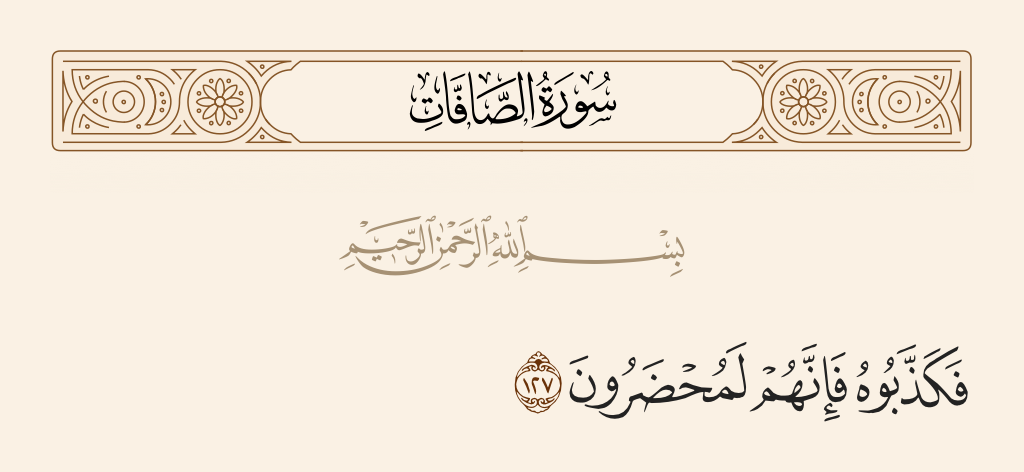 سُورَةُ الصَّافَّاتِ
بِسْمِ ٱللَّهِ ٱلرَّحْمَٰنِ ٱلرَّحِيمِ
فَكَذَّبُوهُ فَإِنَّهُمْ لَمُحْضَرُونَ ١٢٧